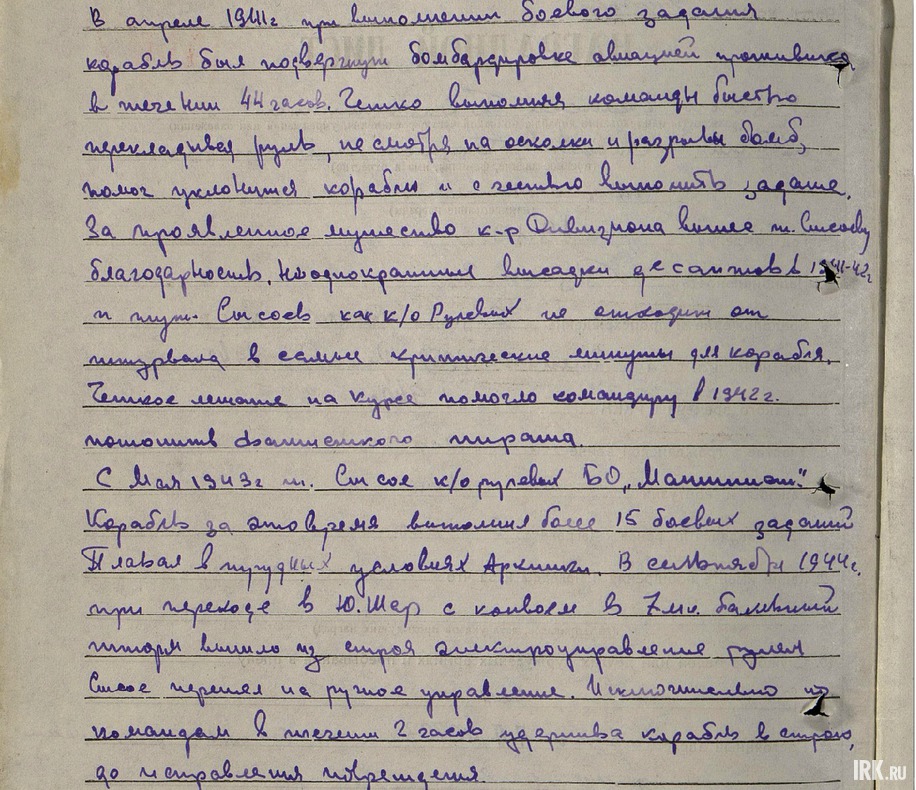 В апреле 1941г при выполнении боевого задания
корабль был подвергнут бомбардировке авиацией противника
в течении 44 часов. Четко выполняя команды быстро
перекладывая руль, не смотря на осколки и разрывы бомб,
помог уклониться кораблю и с честью выполнить задание.
За проявленное мужество к-р Дивизиона вынес т. Сысоеву
благодарность. Неоднократные высадки десантов в 1941-42г
Сысоев как к/о Рулевых не отходил от
штурвала в самые критические минуты для корабля.
Четкое лежание на курсе помогло командиру в 1942г.
потопить фашистского пирата.
С Мая 1943г т. Сысоев к/о рулевых БО „Манштит"
Корабль за это время выполнил более 15 боевых заданий
Плавая в трудных условиях Арктики. В сентябре 1944г.
при переходе в Ю.Шар с конвоем в 7ми бальный
шторм вышло из строя электроуправление рулем
Сысоев перешел на ручное управление. Исключительно
командам в течении 2 часов удерживал корабль в строю,
до исправления повреждения.
IRK.RU